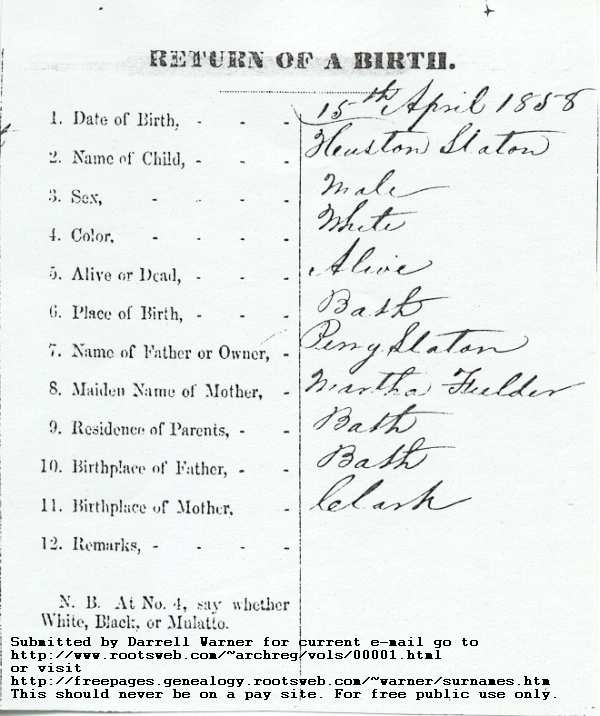 RETURN OF A BIRTH.
1. Date of Birth, - - - 15th April 1858
2. Name of Child, - - - Heuston Slaton
3. Sex, - - - - Male
4. Color, - - - - White
5. Alive or Dead, - - - Alive
6. Place of Birth, - - - Bath
7. Name of Father or Owner, - Perry Slaton
8. Maiden Name of Mother, - Martha Fielder
9. Residence of Parents, - - Bath
10. Birthplace of Father, - - Bath
11. Birthplace of Mother, - Clark
12. Remarks, - - - -
N. B. At No. 4, say whether
White, Black, or Mulatto.
Submitted by Darrell Warner for current e-mail go to
http://www.rootsweb.com/~archreg/vols/00001.html
or visit
http://freepages.genealogy.rootsweb.com/~warner/surnames.htm
This should never be on a pay site. For free public use only.